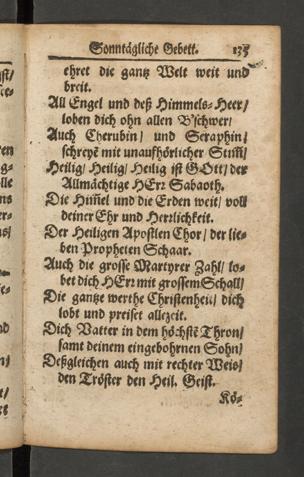 Sonntägliche Gebett. 135
ehret die gantz Welt weit und
breit.
All Engel und deß Himmels-Heer/
loben dich ohn allen B'schwer/
Auch Cherubin/ und Seraphin/
schreyē mit unaufhörlicher Stim̄/
Heilig/ Heilig/ Heilig ist GOtt/ der
Allmächtige HErr Sabaoth.
Die Him̄el und die Erden weit/ voll
deiner Ehr und Herrlichkeit.
Der Heiligen Apostlen Chor/ der lie-
ben Propheten Schaar.
Auch die grosse Martyrer Zahl/ lo-
bet dich HErr mit grossem Schall/
Die gantze werthe Christenheit/ dich
lobt und preiset allezeit.
Dich Vatter in dem höchstē Thron/
samt deinem eingebohrnen Sohn/
Deßgleichen auch mit rechter Weis/
den Tröster den Heil. Geist.
Kö-